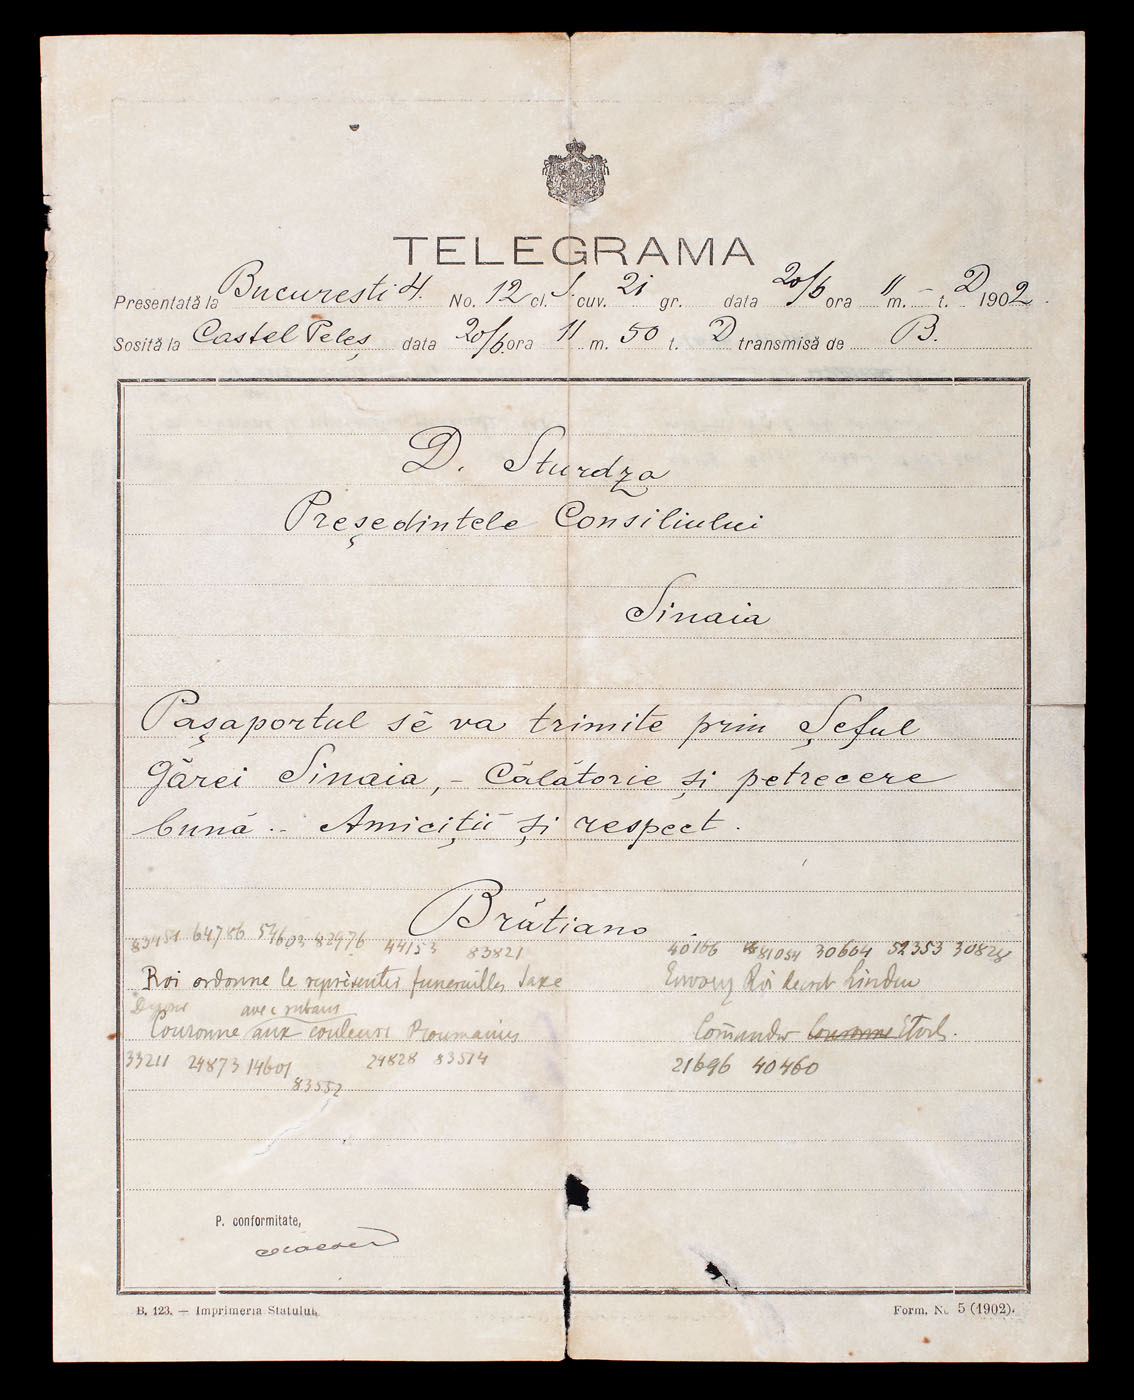 TELEGRAMA
Presentată la Bucuresti 4. No. 12 cl. S. cuv. 21 gr. data 20/6 ora 11 m. - t. D 1902
Sosită la Castel Peleș data 20/6 ora 11 m. 50 t. D transmisă de B.
D. Sturdza
Președintele Consiliului
Sinaia
Pașaportul sĕ va trimite prin Șeful
Gărei Sinaia, - Călătorie și petrecere
bună. - Amiciții și respect.
Brătiano
83451 64786 54603 82976 44153 83821 40166 81054 30664 52353 30828
Roi ordonne le représenter funerailles Saxe Envoy Roi
avec rubans
Couronne aux couleurs Roumaines Comander Couronne
33211 24873 14601 24828 83514 21696 40460
83552
P. conformitate,
B. 123. — Imprimeria Statului. Form. No. 5 (1902).